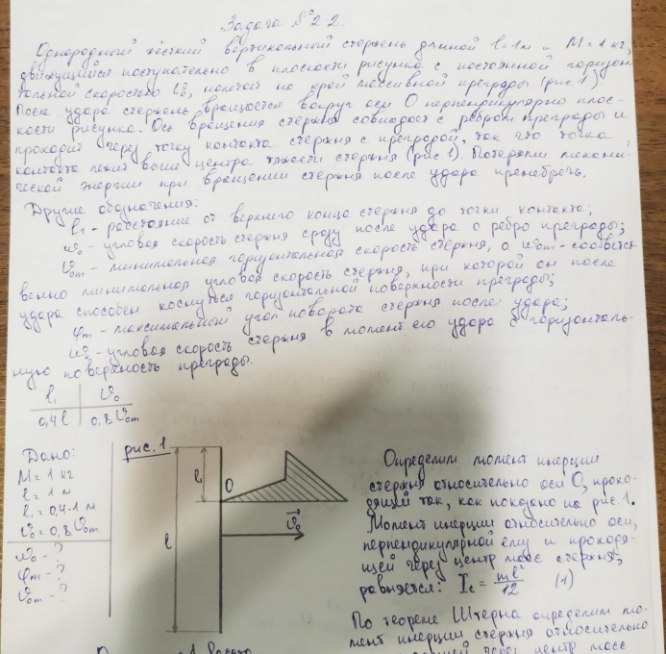 Задача № 2-2.
Однородный жёсткий вертикальный стержень длиной l=1м и M=1кг,
движущийся поступательно в плоскости рисунка с постоянной горизон-
тальной скоростью v₀, налетает на край массивной преграды (рис.1)
После удара стержень вращается вокруг оси O перпендикулярно плос-
кости рисунка. Ось вращения стержня совпадает с ребром преграды и
проходит через точку контакта стержня с преградой, так что точка
контакта лежит выше центра тяжести стержня (рис.1). Потерями механи-
ческой энергии при вращении стержня после удара пренебречь.
Другие обозначения:
l₁ - расстояние от верхнего конца стержня до точки контакта;
ω₀ - угловая скорость стержня сразу после удара о ребро преграды;
v₀m - минимальная горизонтальная скорость стержня, а ω₀m - соответст
венно минимальная угловая скорость стержня, при которой он после
удара способен коснуться горизонтальной поверхности преграды;
φm - максимальный угол поворота стержня после удара;
угловая скорость стержня в момент его удара о горизонталь-
ную поверхность преграды.
l₁ v₀
0,4l 0,8v₀m
Дано:
M=1 кг
l=1 м
l₁=0,4·1 м
v₀=0,8v₀m
ω₀-?
φm-?
v₀m-?
рис.1
l₁
O
l
v₀
Определим момент инерции
стержня относительно оси O, прохо-
дящей так, как показано на рис.1.
Момент инерции относительно оси,
перпендикулярной ему и проходя-
щей через центр масс стержня,
равняется: I_c = ml²/12 (1)
По теореме Штерна определим мо-
мент инерции стержня относительно
через центр масс